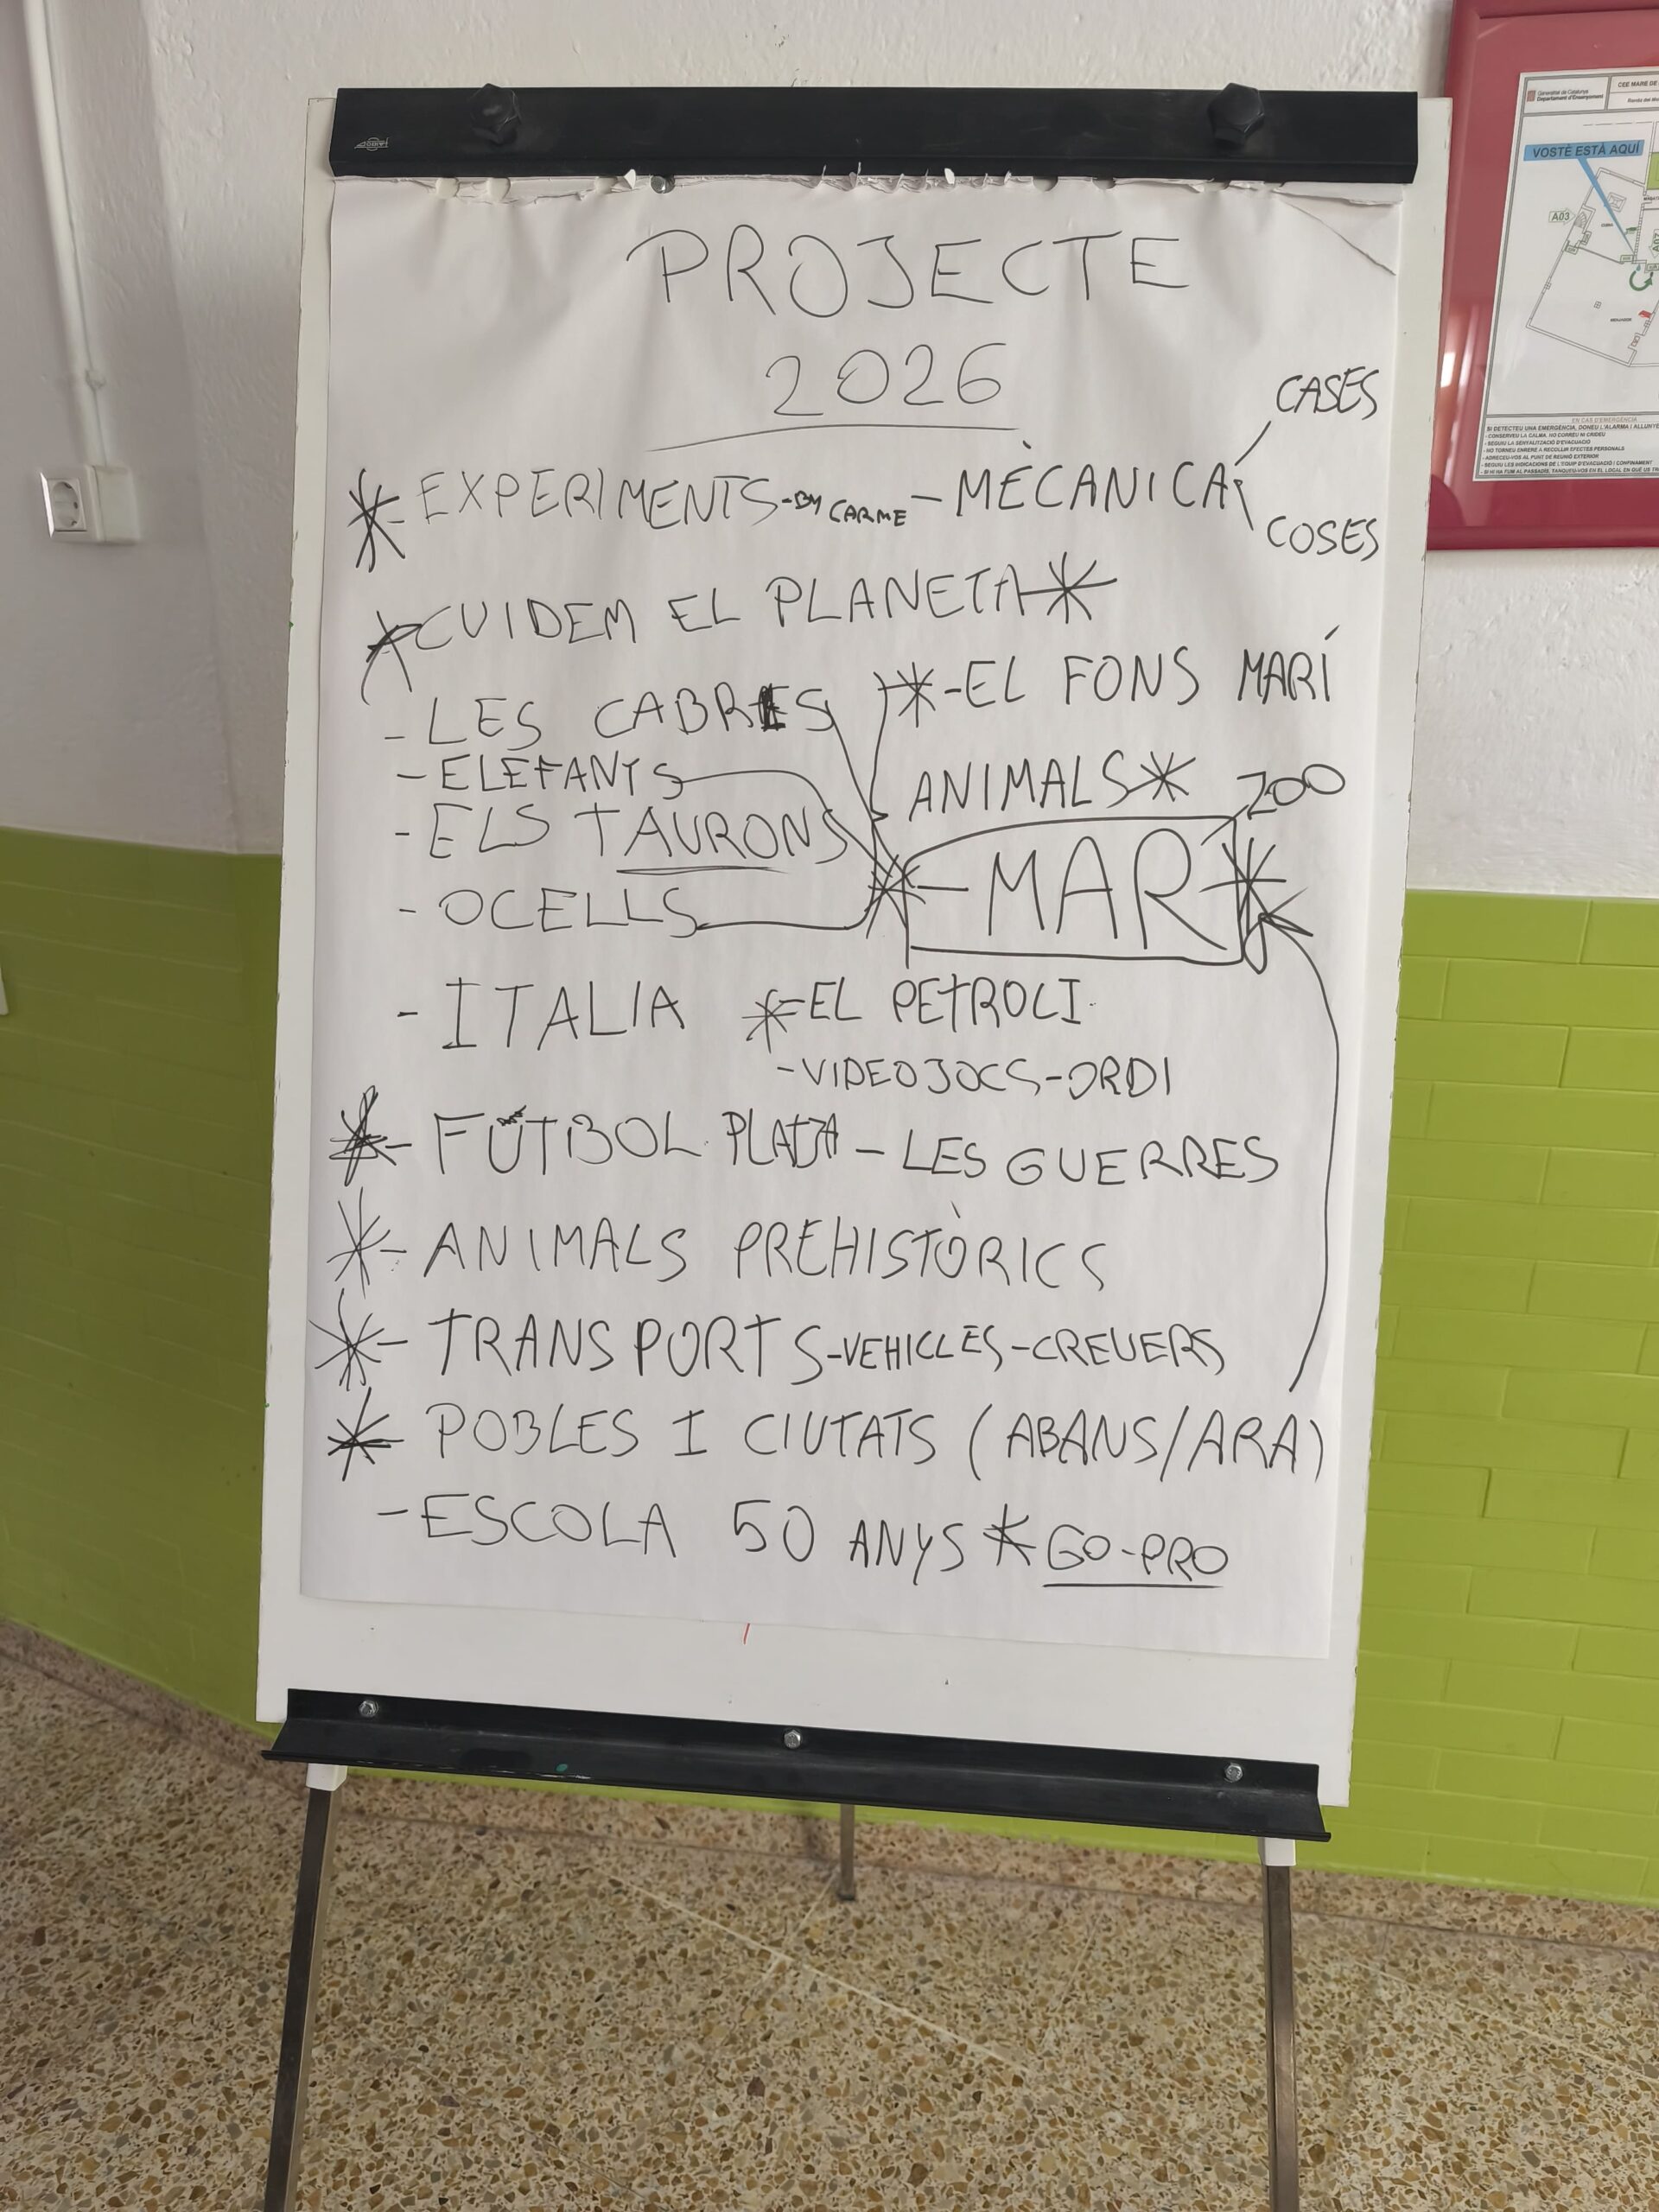 PROJECTE
2026
CASES
* - EXPERIMENTS - BY CARME - MÈCANICA
COSES
* CUIDEM EL PLANETA *
* - EL FONS MARÍ
- LES CABRES
ANIMALS * ZOO
- ELEFANTS
- ELS TAURONS
* - MAR *
- OCELLS
- ITALIA * - EL PETROLI
- VIDEOJOCS - ORDI
* - FUTBOL PLATJA - LES GUERRES
* - ANIMALS PREHISTÒRICS
* - TRANSPORTS - VEHICLES - CREUERS
* - POBLES I CIUTATS (ABANS/ARA)
- ESCOLA 50 ANYS * GO-PRO
Generalitat de Catalunya
Departament d'Ensenyament
CEE MARE DE
VOSTÈ ESTÀ AQUÍ
A03
A07
CUINA
MENJADOR
EN CAS D'EMERGÈNCIA
SI DETECTEU UNA EMERGÈNCIA, DONEU L'ALARMA I ALLUNYE
- CONSERVEU LA CALMA, NO CORREU NI CRIDEU
- SEGUIU LA SENYALITZACIÓ D'EVACUACIÓ
- NO TORNEU ENRERE A RECOLLIR EFECTES PERSONALS
- ADRECEU-VOS AL PUNT DE REUNIÓ EXTERIOR
- SEGUIU LES INDICACIONS DE L'EQUIP D'EVACUACIÓ I CONFINAMENT
- SI HI HA FUM AL PASSADÍS, TANQUEU-VOS EN EL LOCAL EN QUÈ US TR